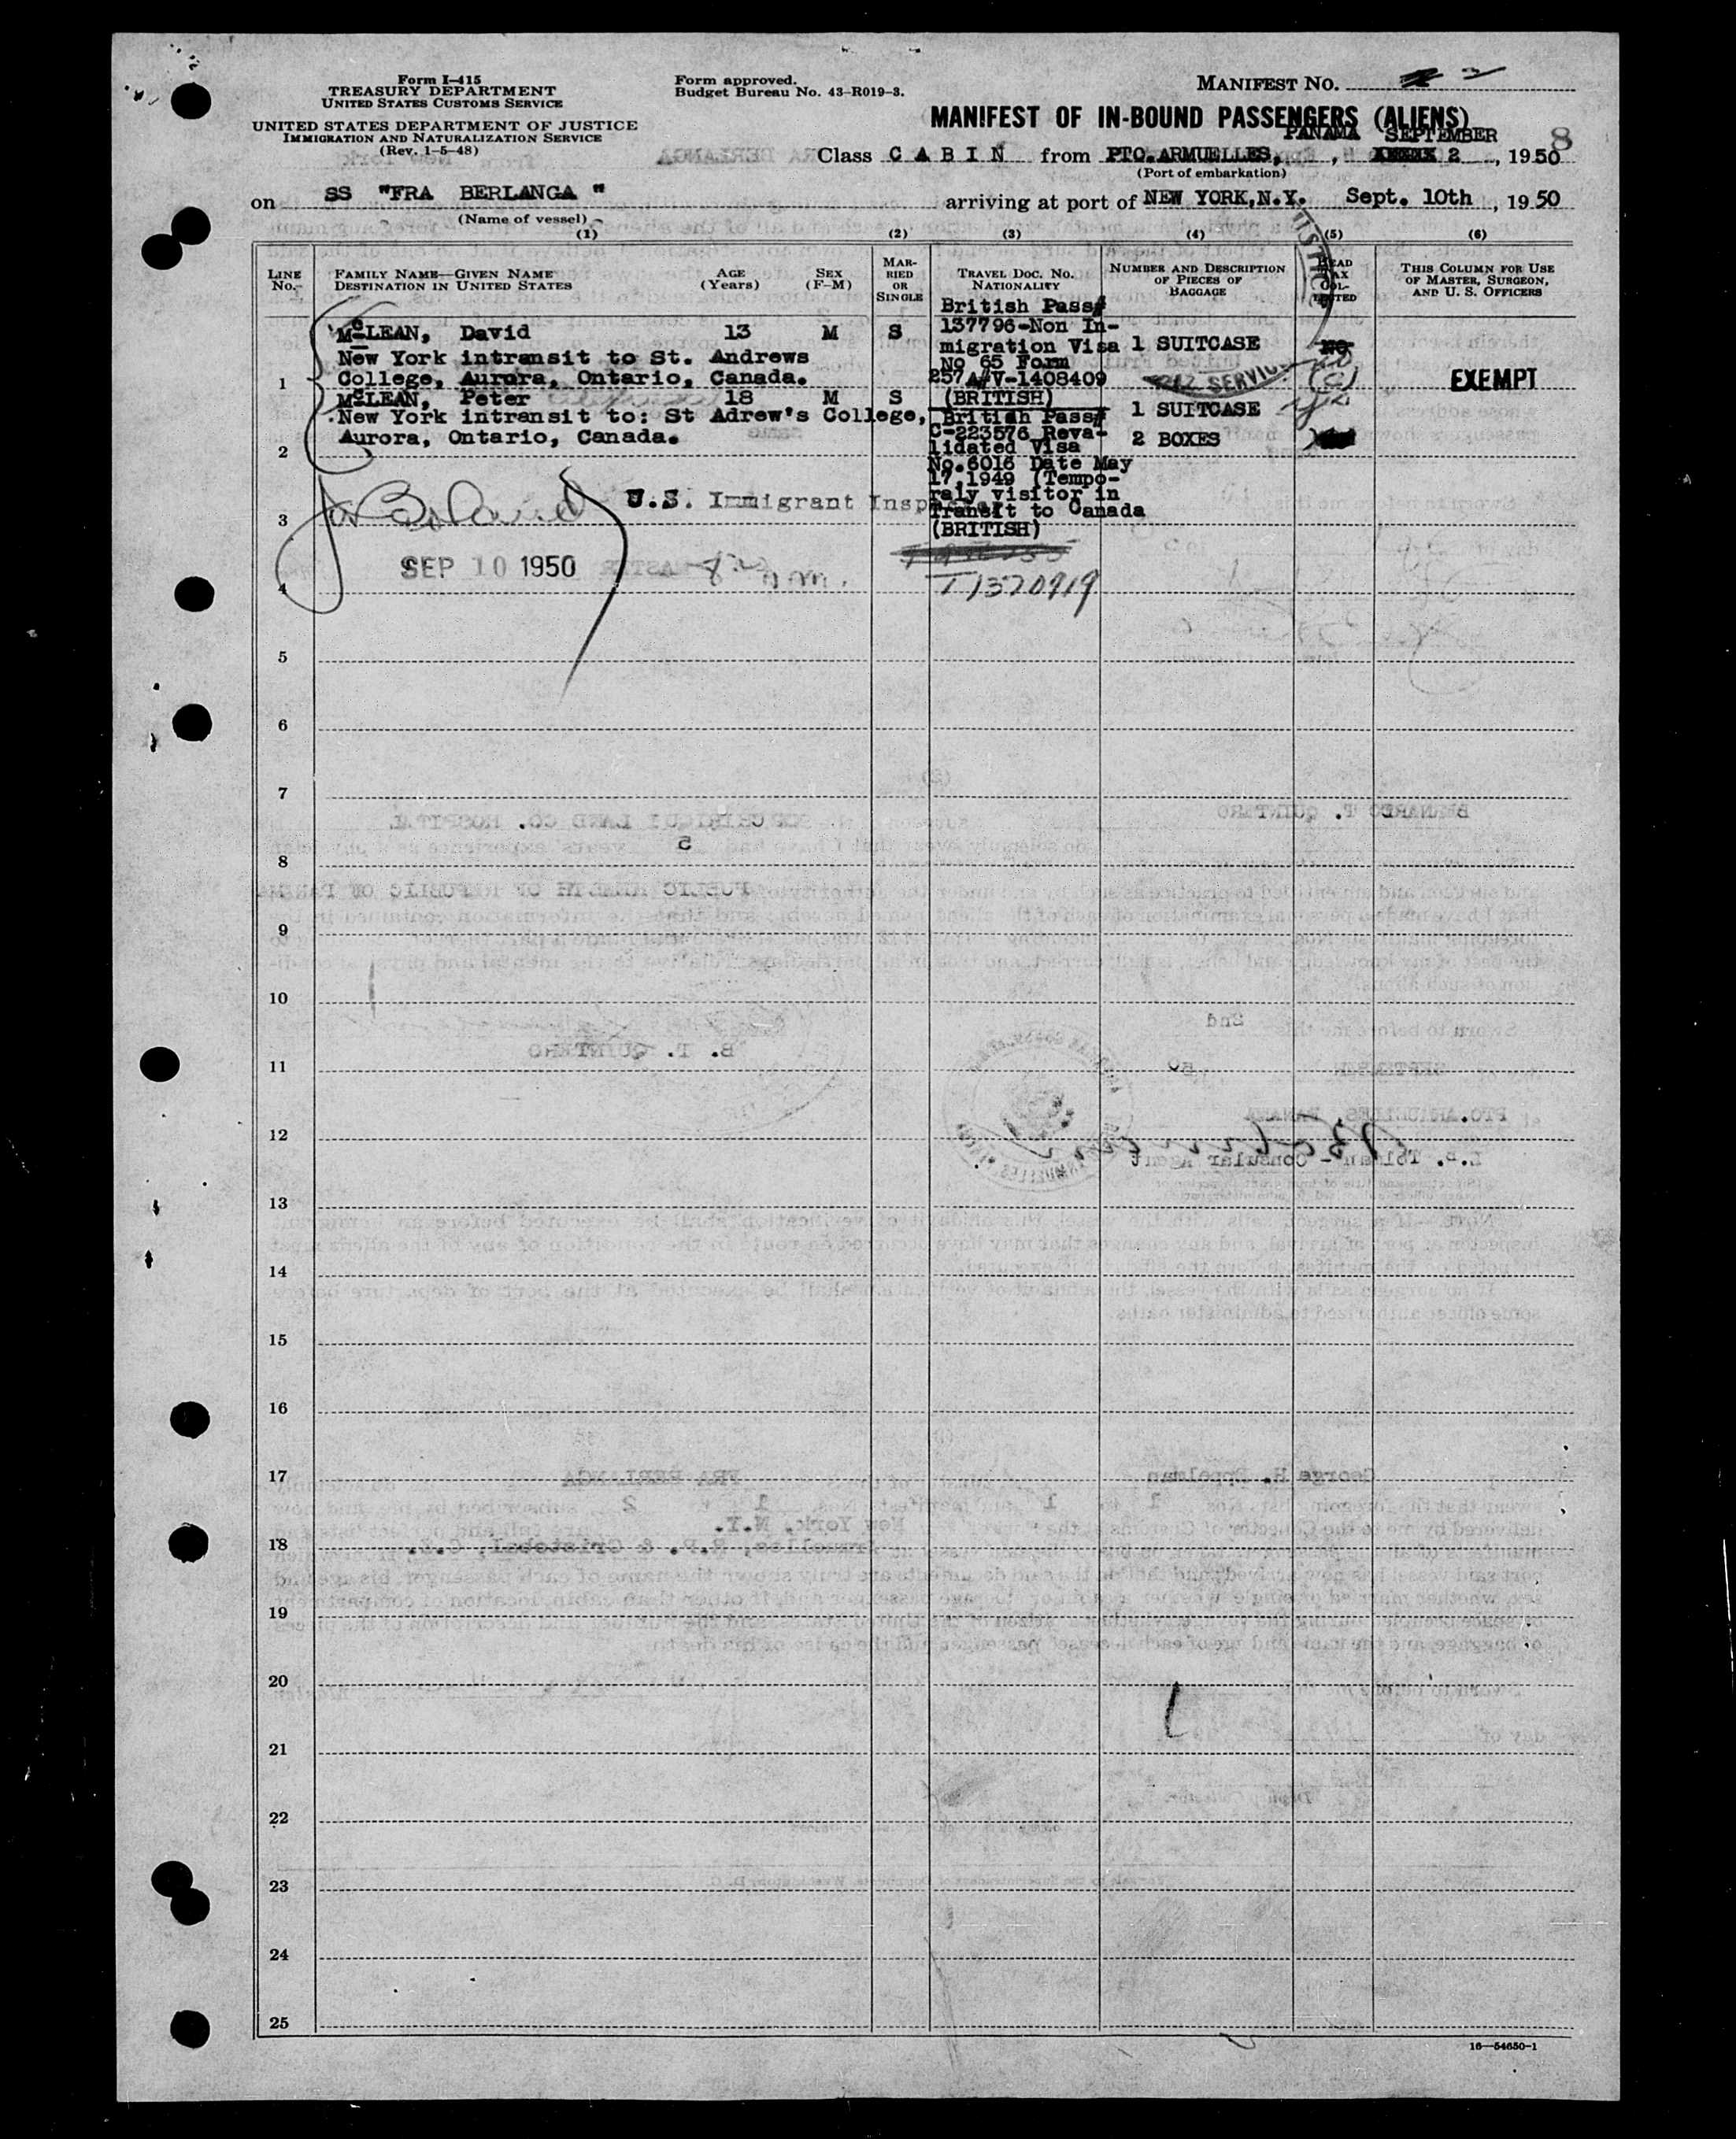 Form I-415
TREASURY DEPARTMENT
UNITED STATES CUSTOMS SERVICE
UNITED STATES DEPARTMENT OF JUSTICE
IMMIGRATION AND NATURALIZATION SERVICE
(Rev. 1-5-48)
Form approved.
Budget Bureau No. 43-R019-3.
MANIFEST NO. 2
MANIFEST OF IN-BOUND PASSENGERS (ALIENS)
PANAMA SEPTEMBER 8
Class CABIN from PTO.ARMUELLES, , 2, 1950
(Port of embarkation)
on SS "FRA BERLANGA " arriving at port of NEW YORK,N.Y. Sept. 10th, 1950
(Name of vessel)
(1) (2) (3) (4) (5) (6)
LINE No. FAMILY NAME—GIVEN NAME DESTINATION IN UNITED STATES AGE (Years) SEX (F-M) MARRIED OR SINGLE TRAVEL DOC. NO. NATIONALITY NUMBER AND DESCRIPTION OF PIECES OF BAGGAGE HEAD TAX COLLECTED THIS COLUMN FOR USE OF MASTER, SURGEON, AND U. S. OFFICERS
British Pass#
McLEAN, David 13 M S 137796-Non Im-
New York intransit to St. Andrews migration Visa 1 SUITCASE NO
No 65 Form
1 College, Aurora, Ontario, Canada. 257A#V-1408409 SERVICE EXEMPT
McLEAN, Peter 18 M S (BRITISH)
New York intransit to: St Adrew's College, British Pass# 1 SUITCASE
C-223576 Reva-
2 Aurora, Ontario, Canada. lidated Visa 2 BOXES
No.6016 Date May
17,1949 (Tempo-
U.S. Immigrant Insp raly visitor in
3 Transit to Canada
(BRITISH)
SEP 10 1950
4 T1320919
5
6
7
8
9
10
11
12
13
14
15
16
17
18
19
20
21
22
23
24
25
16—54650-1